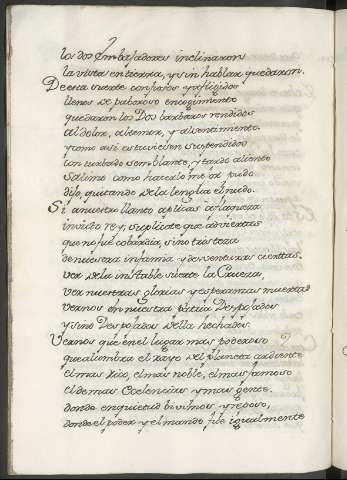 los dos Embajadores inclinaron
la vista en tierra, y sin hablar quedaron.
De esta suerte confusos y afligidos
llenos de pavoroso encogimiento
quedaron los Dos barbaros rendidos
al dolor, al temor, y al sentimiento.
y como assi estuviesen suspendidos
con turbado semblante, y tardo aliento
Solimo como hacerlo mejor pudo
dijo, quitando dela lengua el nudo.
Si a nuestro llanto aplicas a flaqueza
invicto rey, suplicote que adviertas
que no fue cobardia, sino tristeza
de nuestra infamia y desventuras ciertas.
ver dela instable suerte la Crueza,
ver nuestras glorias y esperanzas muertas
vernos en nuestra patria Despojados
y sino Despojados della hechados.
Vernos que en el lugar mas poderoso
que alumbra el rayo del planeta ardiente
el mas rico, el mas noble, el mas famoso
el de mas Excelencias y mas gente.
donde en quietud bivimos y reposo,
donde el poder y el mando fue igualmente